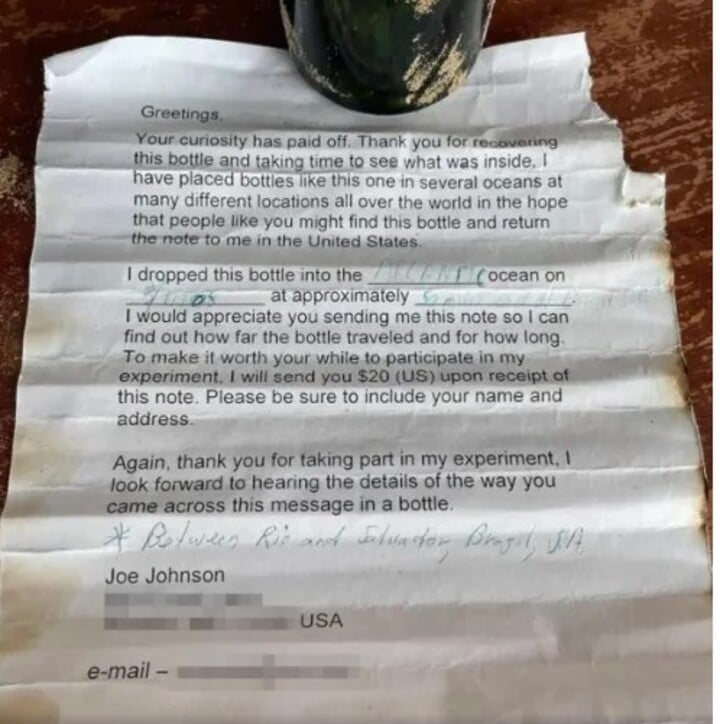 Greetings,
Your curiosity has paid off. Thank you for recovering
this bottle and taking time to see what was inside. I
have placed bottles like this one in several oceans at
many different locations all over the world in the hope
that people like you might find this bottle and return
the note to me in the United States.
I dropped this bottle into the ATLANTIC ocean on
at approximately
I would appreciate you sending me this note so I can
find out how far the bottle traveled and for how long.
To make it worth your while to participate in my
experiment, I will send you $20 (US) upon receipt of
this note. Please be sure to include your name and
address.
Again, thank you for taking part in my experiment, I
look forward to hearing the details of the way you
came across this message in a bottle.
* Between Rio and Salvador, Brazil, SA
Joe Johnson
USA
e-mail –